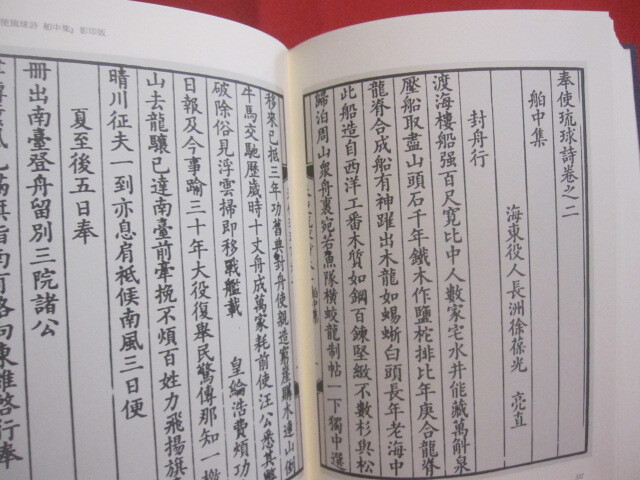 奉使琉球詩卷之二
舶中集
海東役人長洲徐葆光 亮直
封舟行
渡海樓船强百尺寬比中人數家宅水井能藏萬斛泉
壓船取盡山頭石千年鐵木作鹽柁排比年庚合龍脊
龍脊合成船有神躍出木龍如蜴蜥白頭長年老海中
此船造自西洋工番木質如鋼百鍊堅緻不數杉與松
歸泊周山衆舟裏宛若魚隊橫蛟龍制帖一下獨中選
移來已抵三年功舊典封舟使親造窮崖購木連山倒
牛馬交馳歷歲時十丈舟成萬家耗前使汪公悉其弊
破除俗見浮雲掃即移戰艦載 皇綸浩費煩功
日報及今事踰三十年大役復舉民驚傳那知一檄
山去龍驤已達南臺前牽挽不煩百姓力飛揚旗
晴川征夫一到亦息肩祇候南風三日便
夏至後五日奉
冊出南臺登舟留別三院諸公
使琉球詩 舶中集』影印版